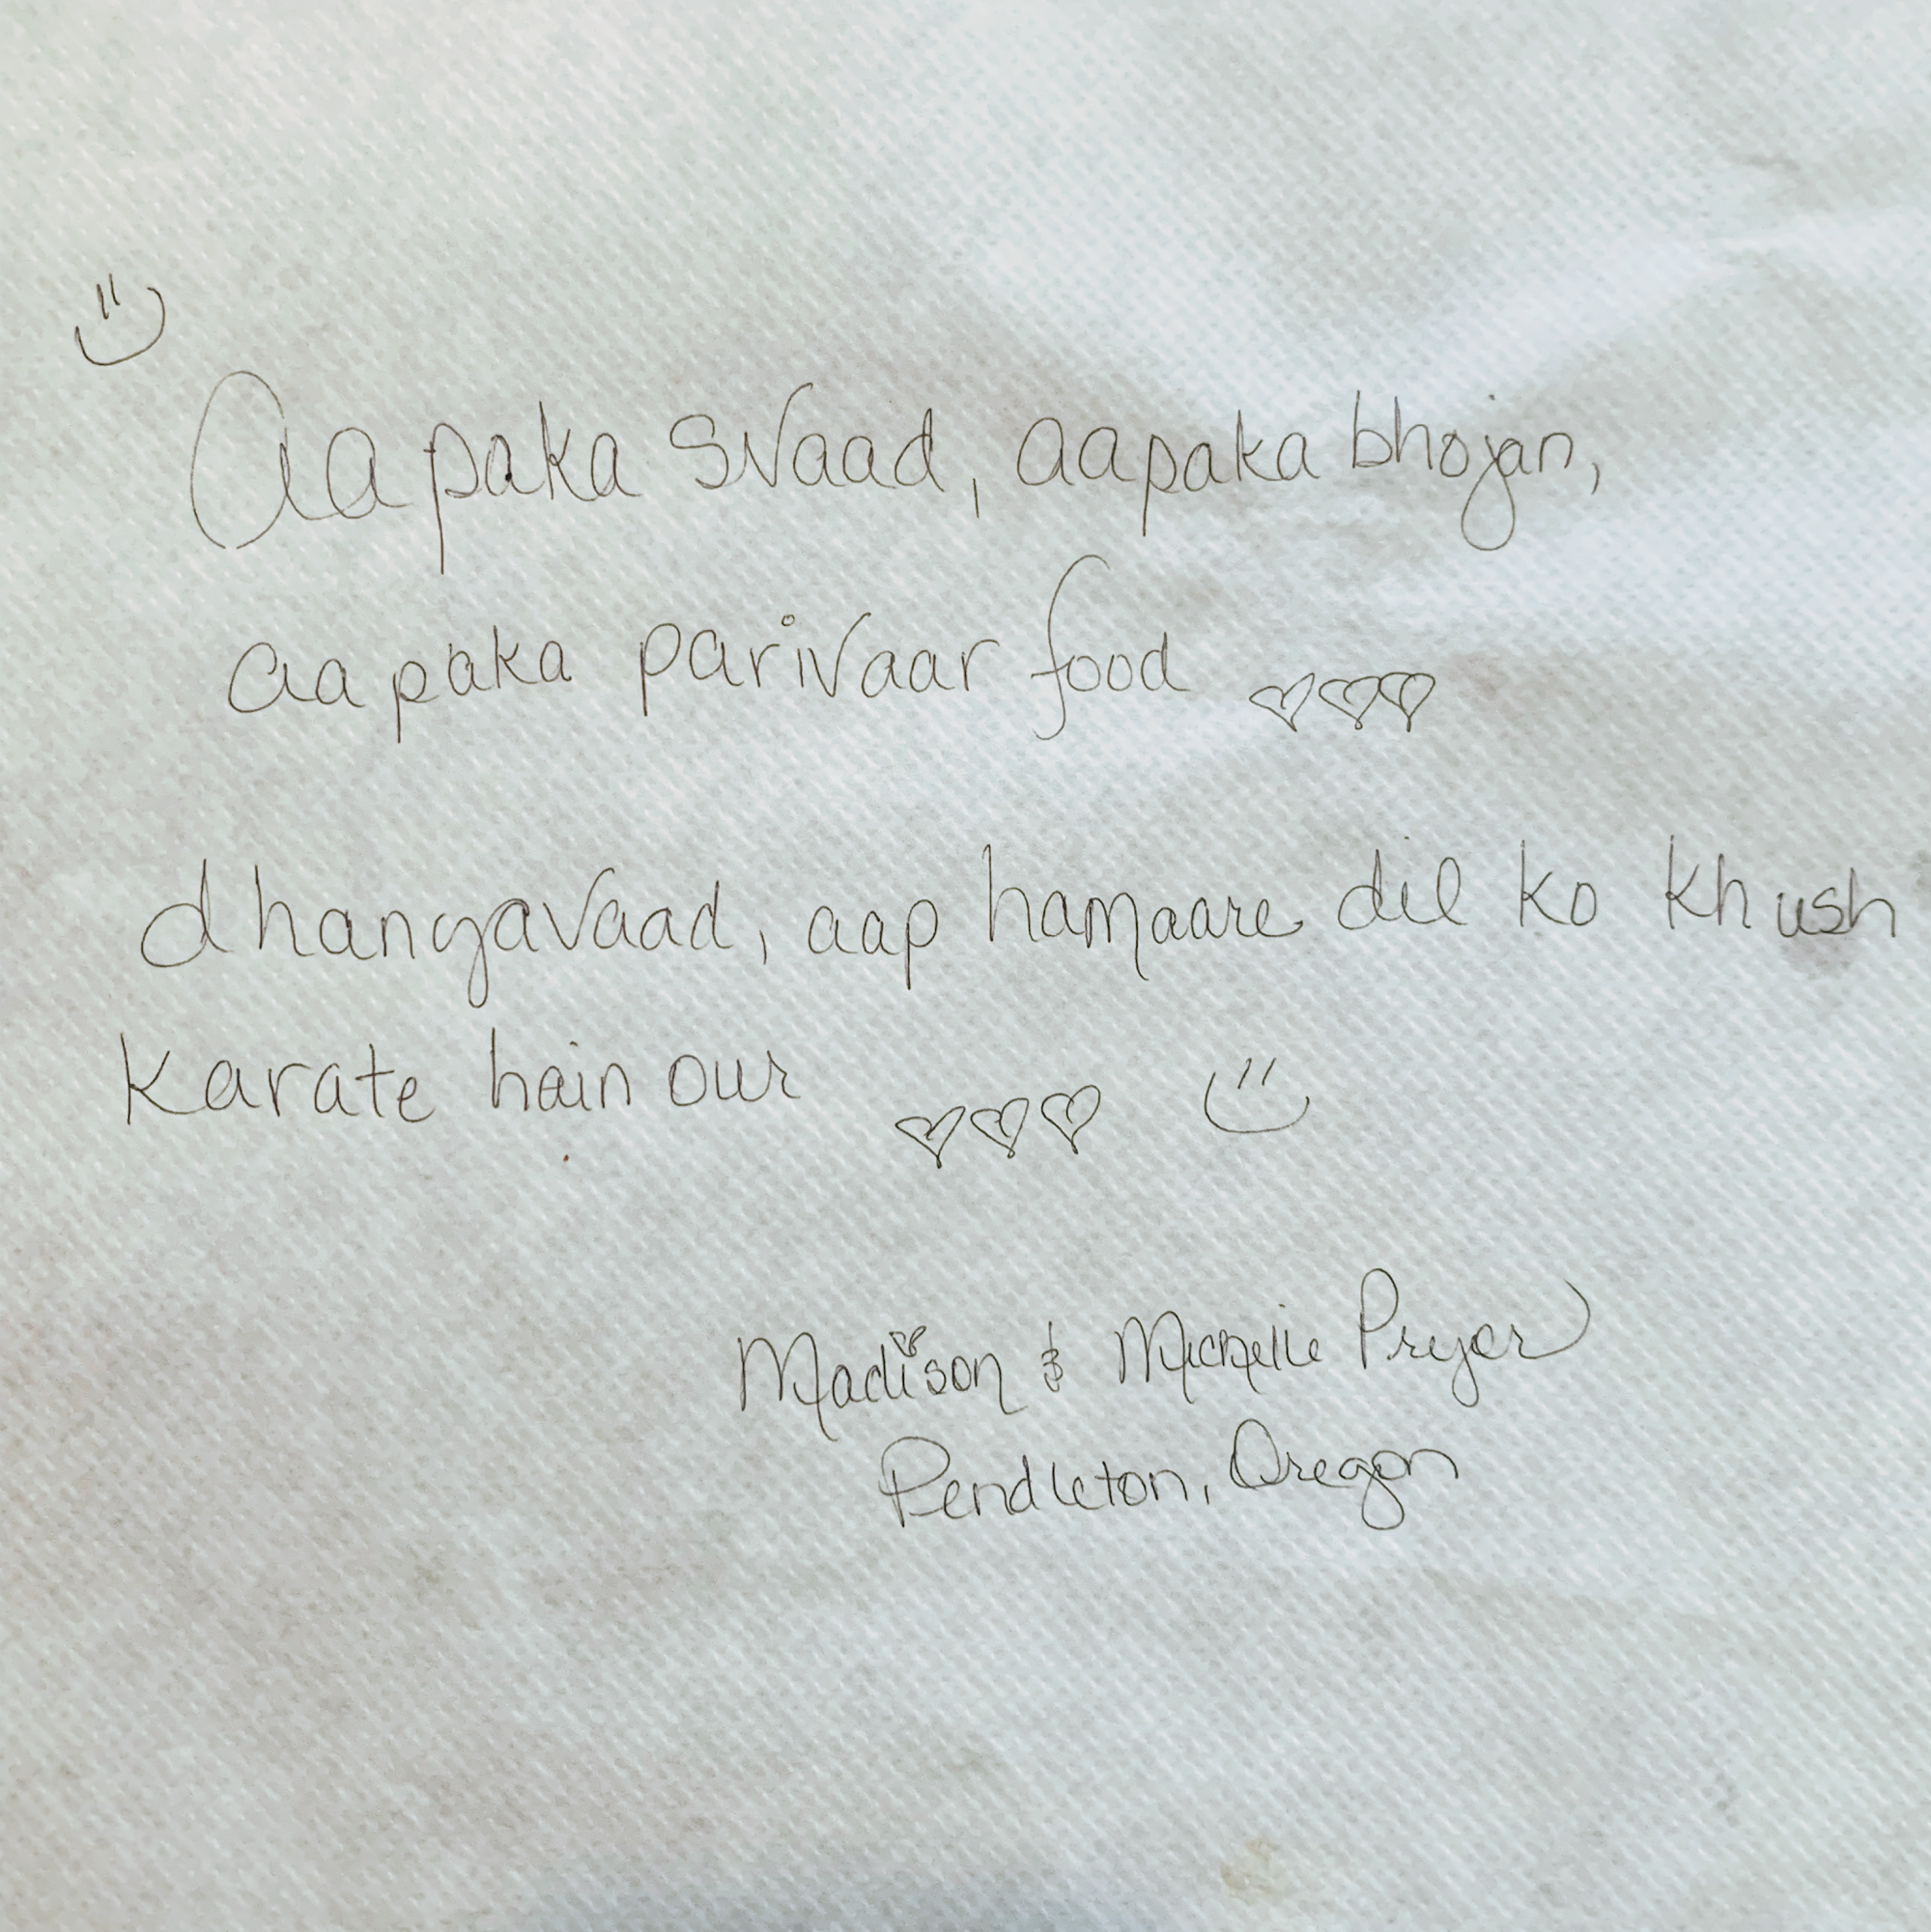 Aapaka svaad, aapaka bhojan,
aapaka parivaar food
dhanyavaad, aap hamaare dil ko khush
karate hain our
Madison & Michelle Pryor
Pendleton, Oregon